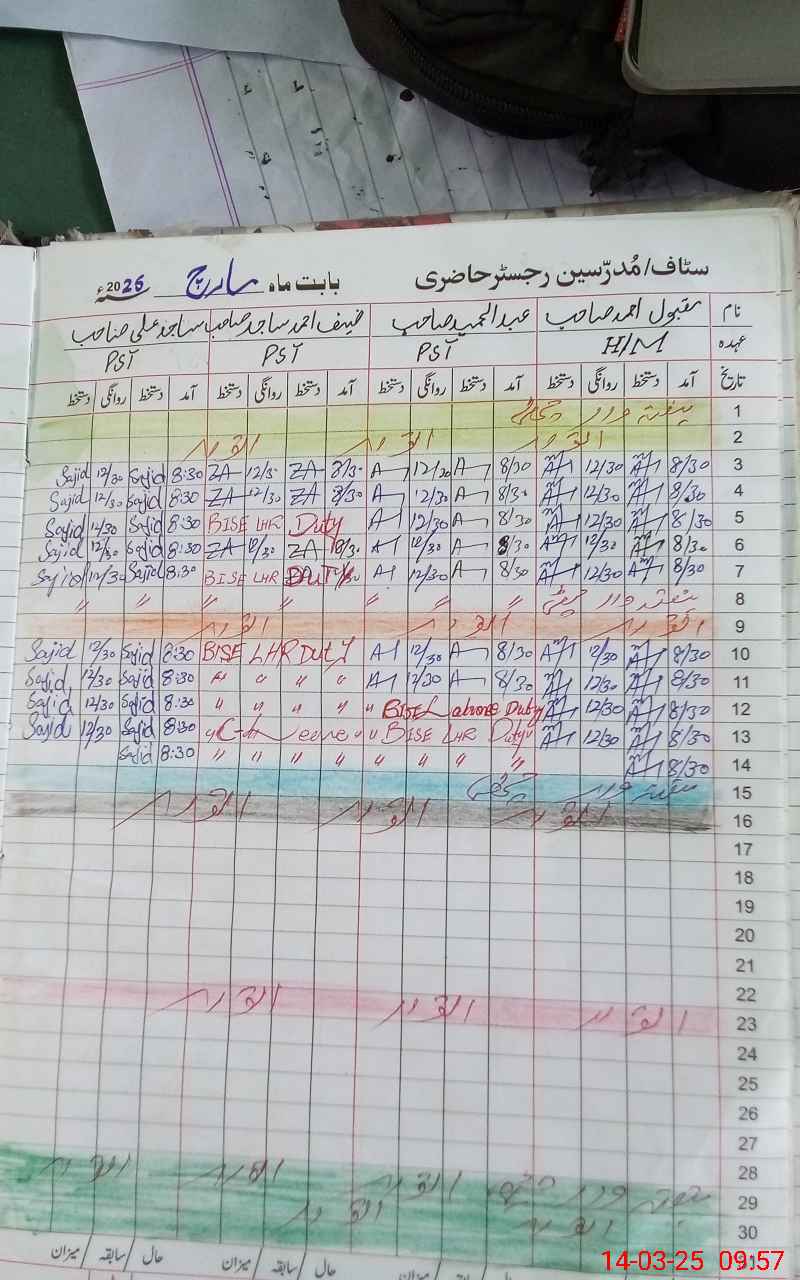 سٹاف/مُدرّسین رجسٹر حاضری بابت ماہ مارچ 2025ء
نام مقبول احمد صاحب عبدالحمید صاحب ضیف احمد ساجد صاحب ساجد علی صاحب
عہدہ H/M PST PST PST
تاریخ آمد دستخط روانگی دستخط آمد دستخط روانگی دستخط آمد دستخط روانگی دستخط آمد دستخط روانگی دستخط
1 ہفتہ وار چھٹی
2 اتوار اتوار اتوار
3 8/30 12/30 8/30 A 12/30 A 8/30 ZA 12/30 ZA 8:30 Sajid 12/30 Sajid
4 8/30 12/30 8/30 A 12/30 A 8/30 ZA 12/30 ZA 8:30 Sajid 12/30 Sajid
5 8/30 12/30 8/30 A 12/30 A BISE LHR Duty 8:30 Sajid 12/30 Sajid
6 8/30 12/30 8/30 A 12/30 A 8/30 ZA 12/30 ZA 8:30 Sajid 12/30 Sajid
7 8/30 12/30 8/30 A 12/30 A BISE LHR DUTY 8:30 Sajid 12/30 Sajid
8 ہفتہ وار چھٹی " " " " " "
9 اتوار اتوار اتوار
10 8/30 12/30 8/30 A 12/30 A BISE LHR DUTY 8:30 Sajid 12/30 Sajid
11 8/30 12/30 8/30 A 12/30 A " " " " 8:30 Sajid 12/30 Sajid
12 8/30 12/30 BISE Lahore Duty " " " " " 8:30 Sajid 12/30 Sajid
13 8/30 12/30 BISE LHR Duty Leave 8:30 Sajid 12/30 Sajid
14 8/30 " " " " " " " " 8:30 Sajid
15 ہفتہ وار چھٹی
16 اتوار اتوار اتوار
17
18
19
20
21
22
23 اتوار اتوار اتوار
24
25
26
27
28
29 ہفتہ وار چھٹی اتوار اتوار اتوار
30 اتوار اتوار
حال / سابقہ / میزان حال / سابقہ / میزان
14-03-25 09:57